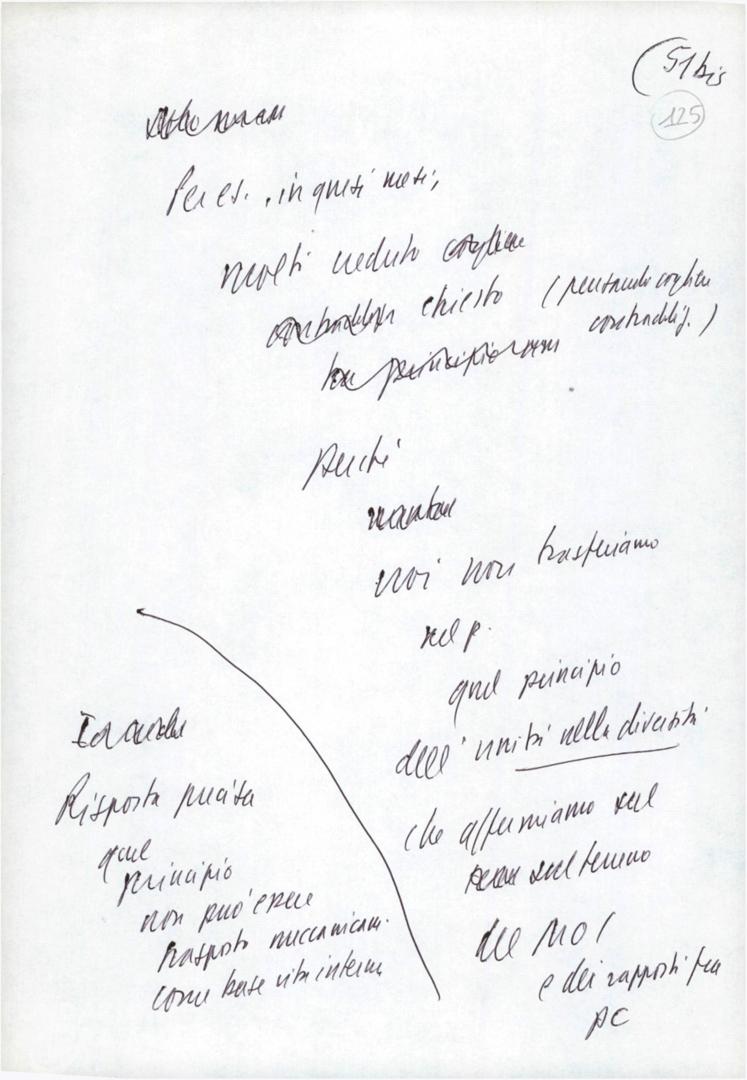 (51bis
125
Per es., in questi mesi,
molti veduto cogliere
chiesto (pensando cogliere
contraddiz.)
perché
noi non trasferiamo
nel p.
quel principio
dell'unità nella diversità
che affermiamo sul
sul terreno
del MOI
e dei rapporti fra
PC
Risposta precisa
quel
principio
non può essere
trasposto meccanicam.
come base vita interna